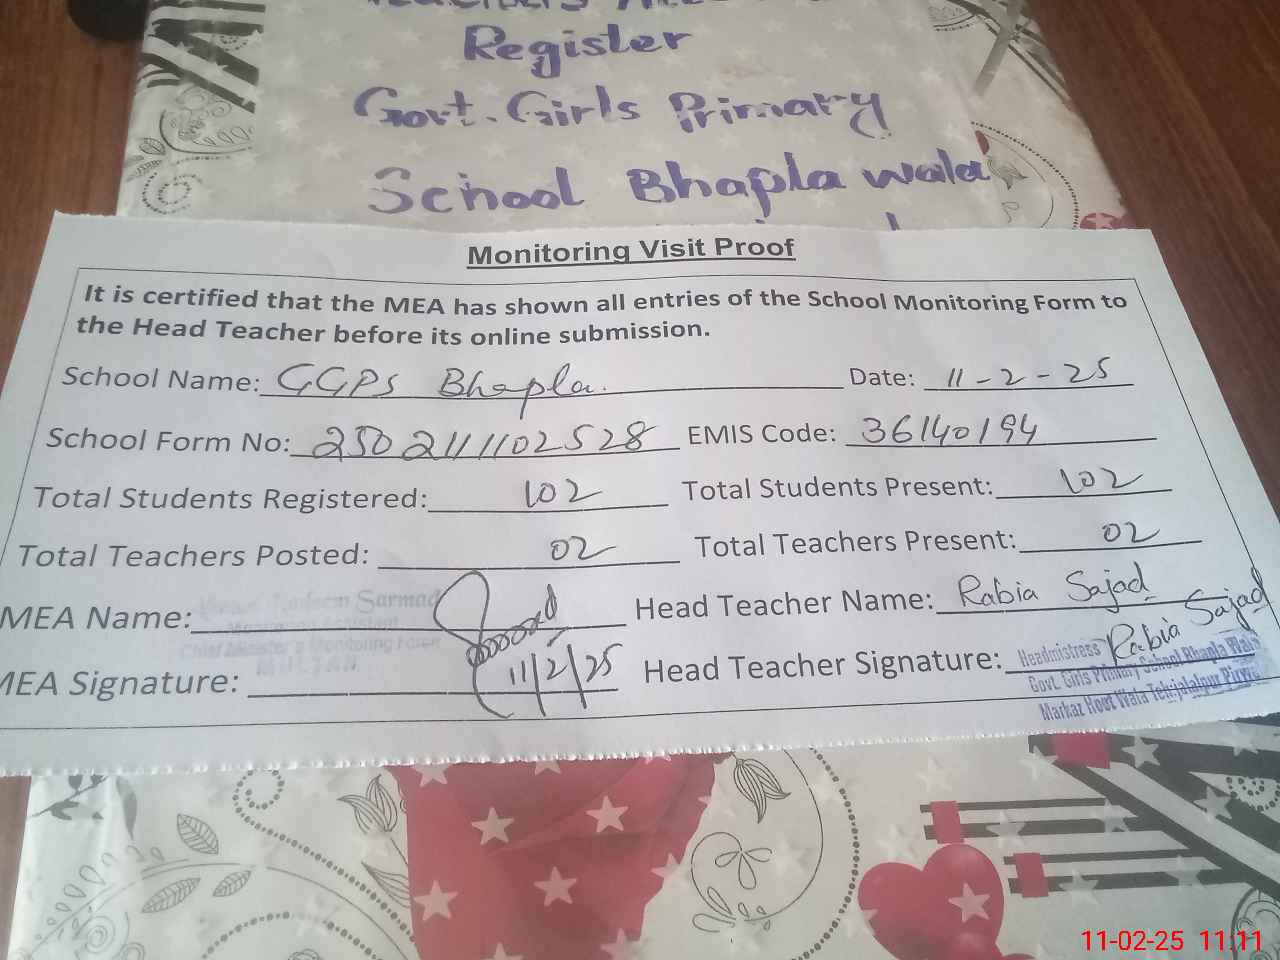 Register
Govt. Girls Primary
School Bhapla wala
Monitoring Visit Proof
It is certified that the MEA has shown all entries of the School Monitoring Form to
the Head Teacher before its online submission.
School Name: GGPS Bhapla. Date: 11-2-25
School Form No: 250211102528 EMIS Code: 36140194
Total Students Registered: 102 Total Students Present: 102
Total Teachers Posted: 02 Total Teachers Present: 02
MEA Name: Sarmad Head Teacher Name: Rabia Sajad
Monitoring Assistant
Chief Minister's Monitoring Force
MULTAN
MEA Signature: 11/2/25 Head Teacher Signature: Rabia Sajad
Headmistress
Govt. Girls Primary School Bhapla Wala
Markaz Hoot Wala Teh:jalalpur Pirwala
11-02-25 11:11